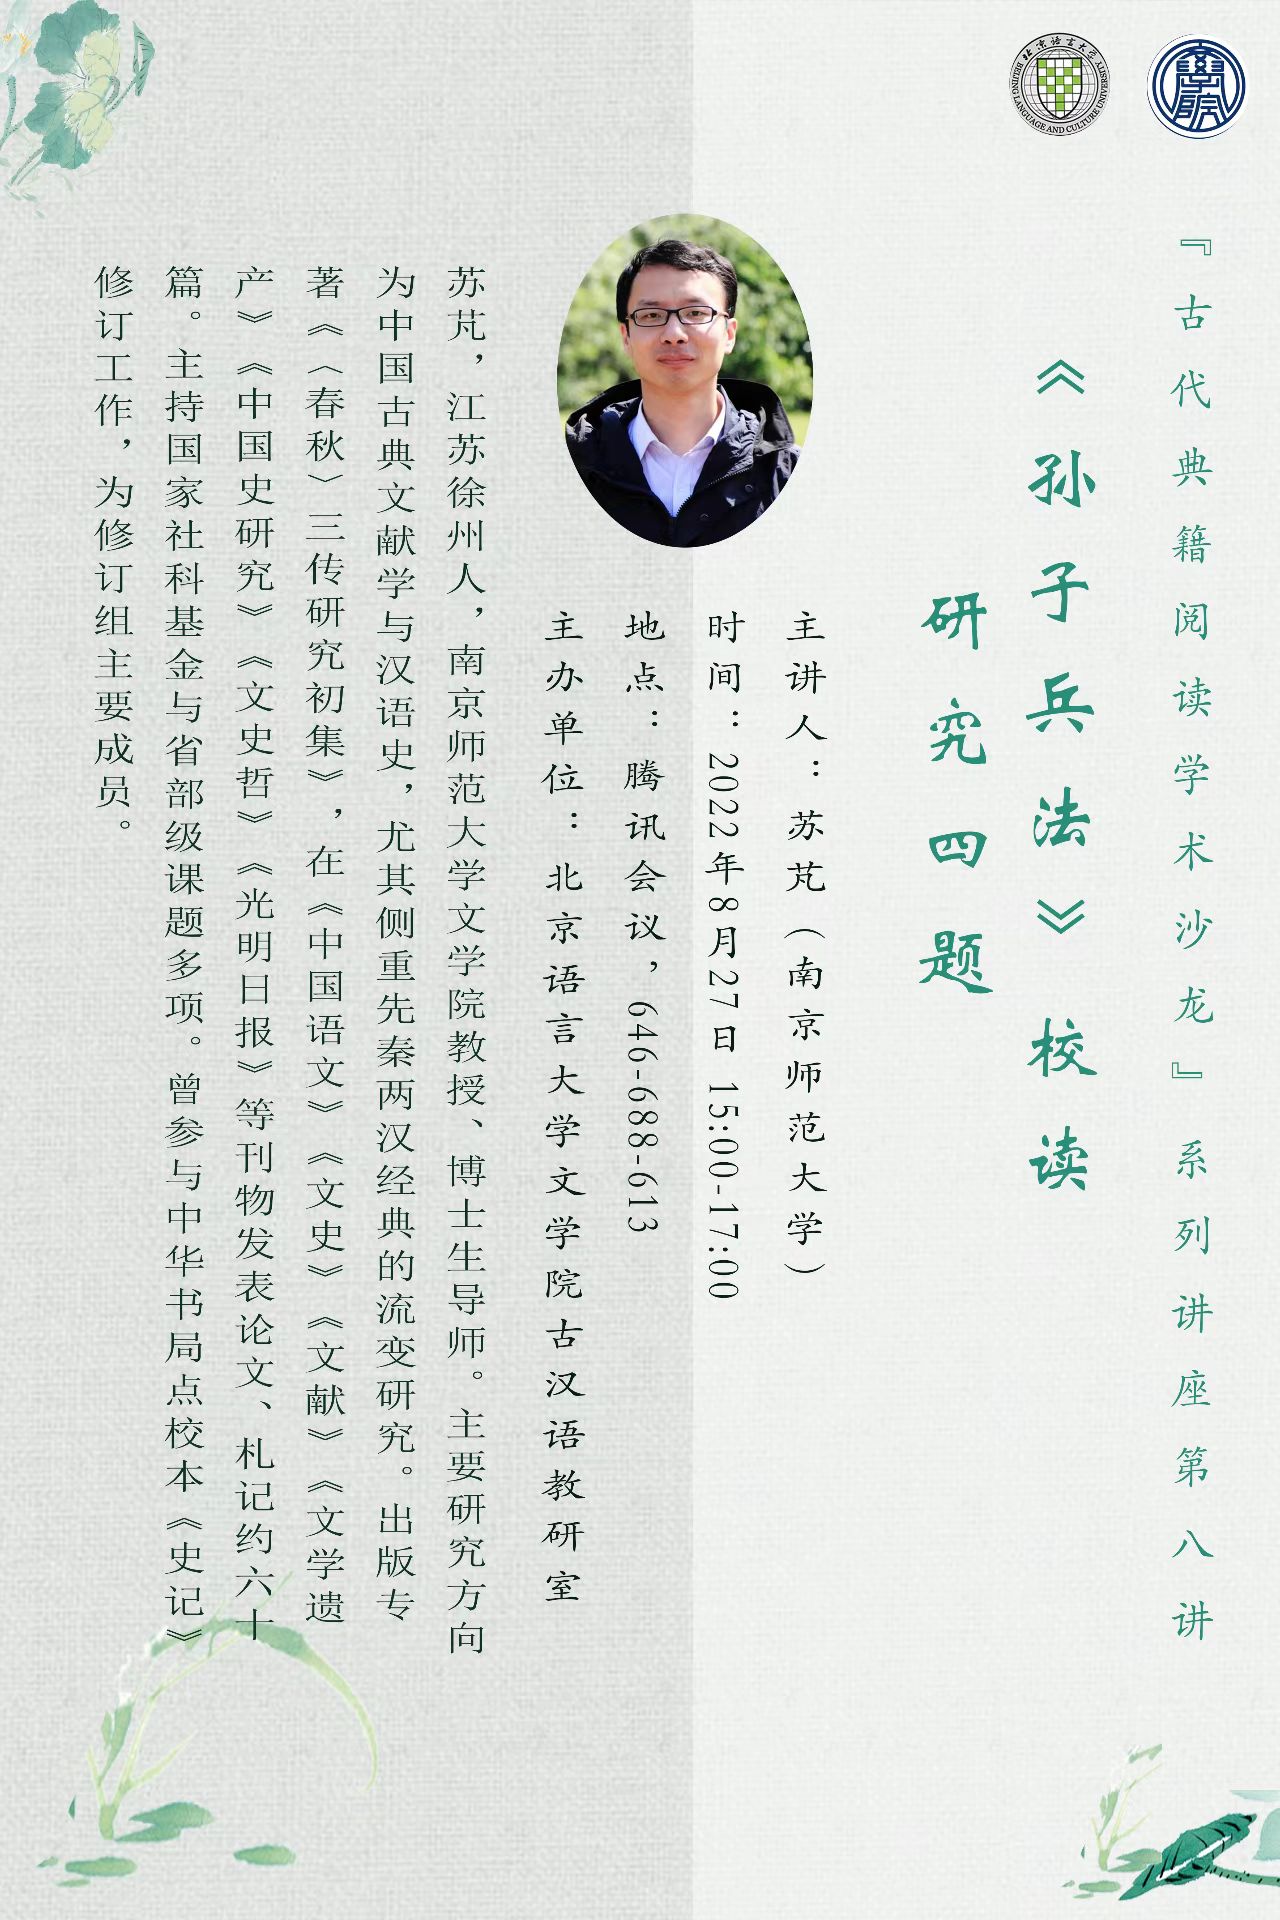 北京语言大学
BEIJING LANGUAGE AND CULTURE UNIVERSITY
學院
『古代典籍阅读学术沙龙』系列讲座第八讲
《孙子兵法》校读
研究四题
主讲人：苏芃（南京师范大学）
时间：2022年8月27日 15:00-17:00
地点：腾讯会议，646-688-613
主办单位：北京语言大学文学院古汉语教研室
苏芃，江苏徐州人，南京师范大学文学院教授、博士生导师。主要研究方向
为中国古典文献学与汉语史，尤其侧重先秦两汉经典的流变研究。出版专
著《〈春秋〉三传研究初集》，在《中国语文》《文史》《文献》《文学遗
产》《中国史研究》《文史哲》《光明日报》等刊物发表论文、札记约六十
篇。主持国家社科基金与省部级课题多项。曾参与中华书局点校本《史记》
修订工作，为修订组主要成员。